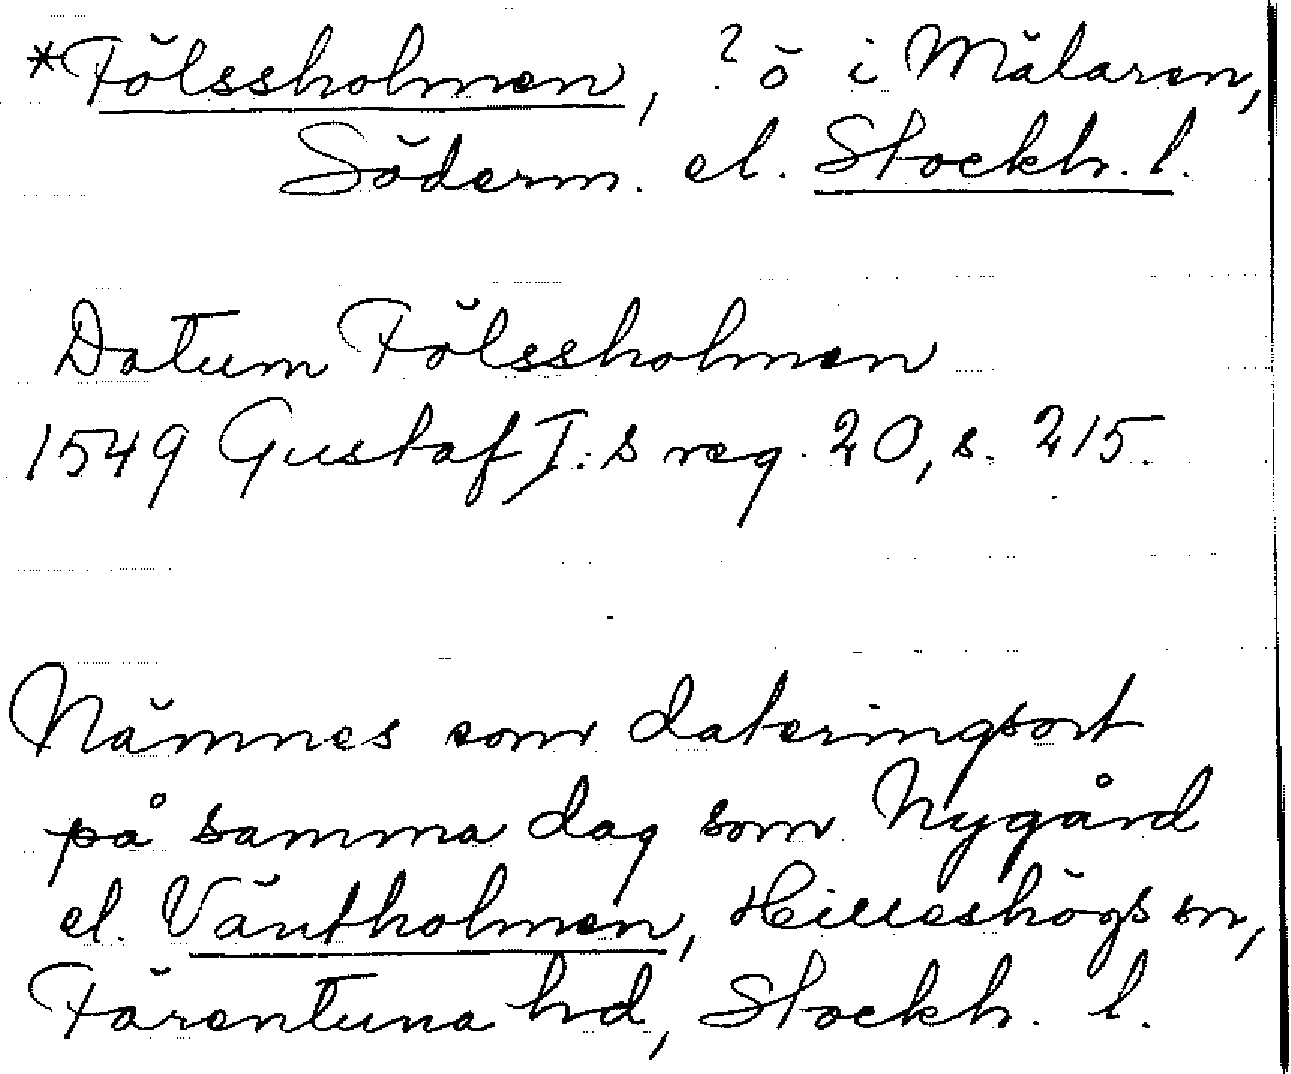 *Fölssholmen, ? ö i Mälaren,
Söderm. el. Stockh. l.
Datum Fölssholmen
1549 Gustaf I:s reg. 20, s. 215.
Nämnes som dateringsort
på samma dag som Nygård
el. Väntholmen, Hilleshögs sn,
Färentuna hd, Stockh. l.